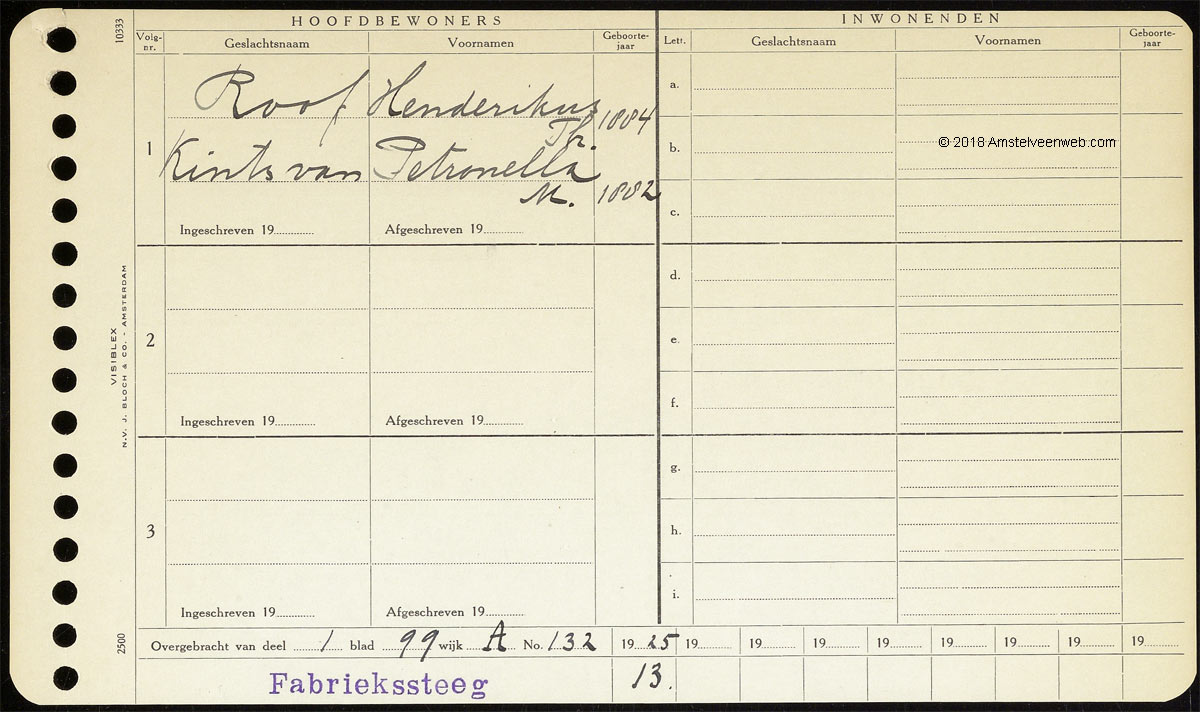 HOOFDBEWONERS
INWONENDEN
10333
Volg-nr.
Geslachtsnaam
Voornamen
Geboorte-jaar
Lett.
Geslachtsnaam
Voornamen
Geboorte-jaar
1
Roof Henderikus
Th. 1884
Kints van Petronella
M. 1882
Ingeschreven 19
Afgeschreven 19
2
Ingeschreven 19
Afgeschreven 19
3
Ingeschreven 19
Afgeschreven 19
a.
b.
© 2018 Amstelveenweb.com
c.
d.
e.
f.
g.
h.
i.
VISIBLEX
N.V. J. BLOCH & CO. - AMSTERDAM
2500
Overgebracht van deel 1 blad 99 wijk A No. 132 19 25 19 19 19 19 19 19 19 19
Fabriekssteeg 13.